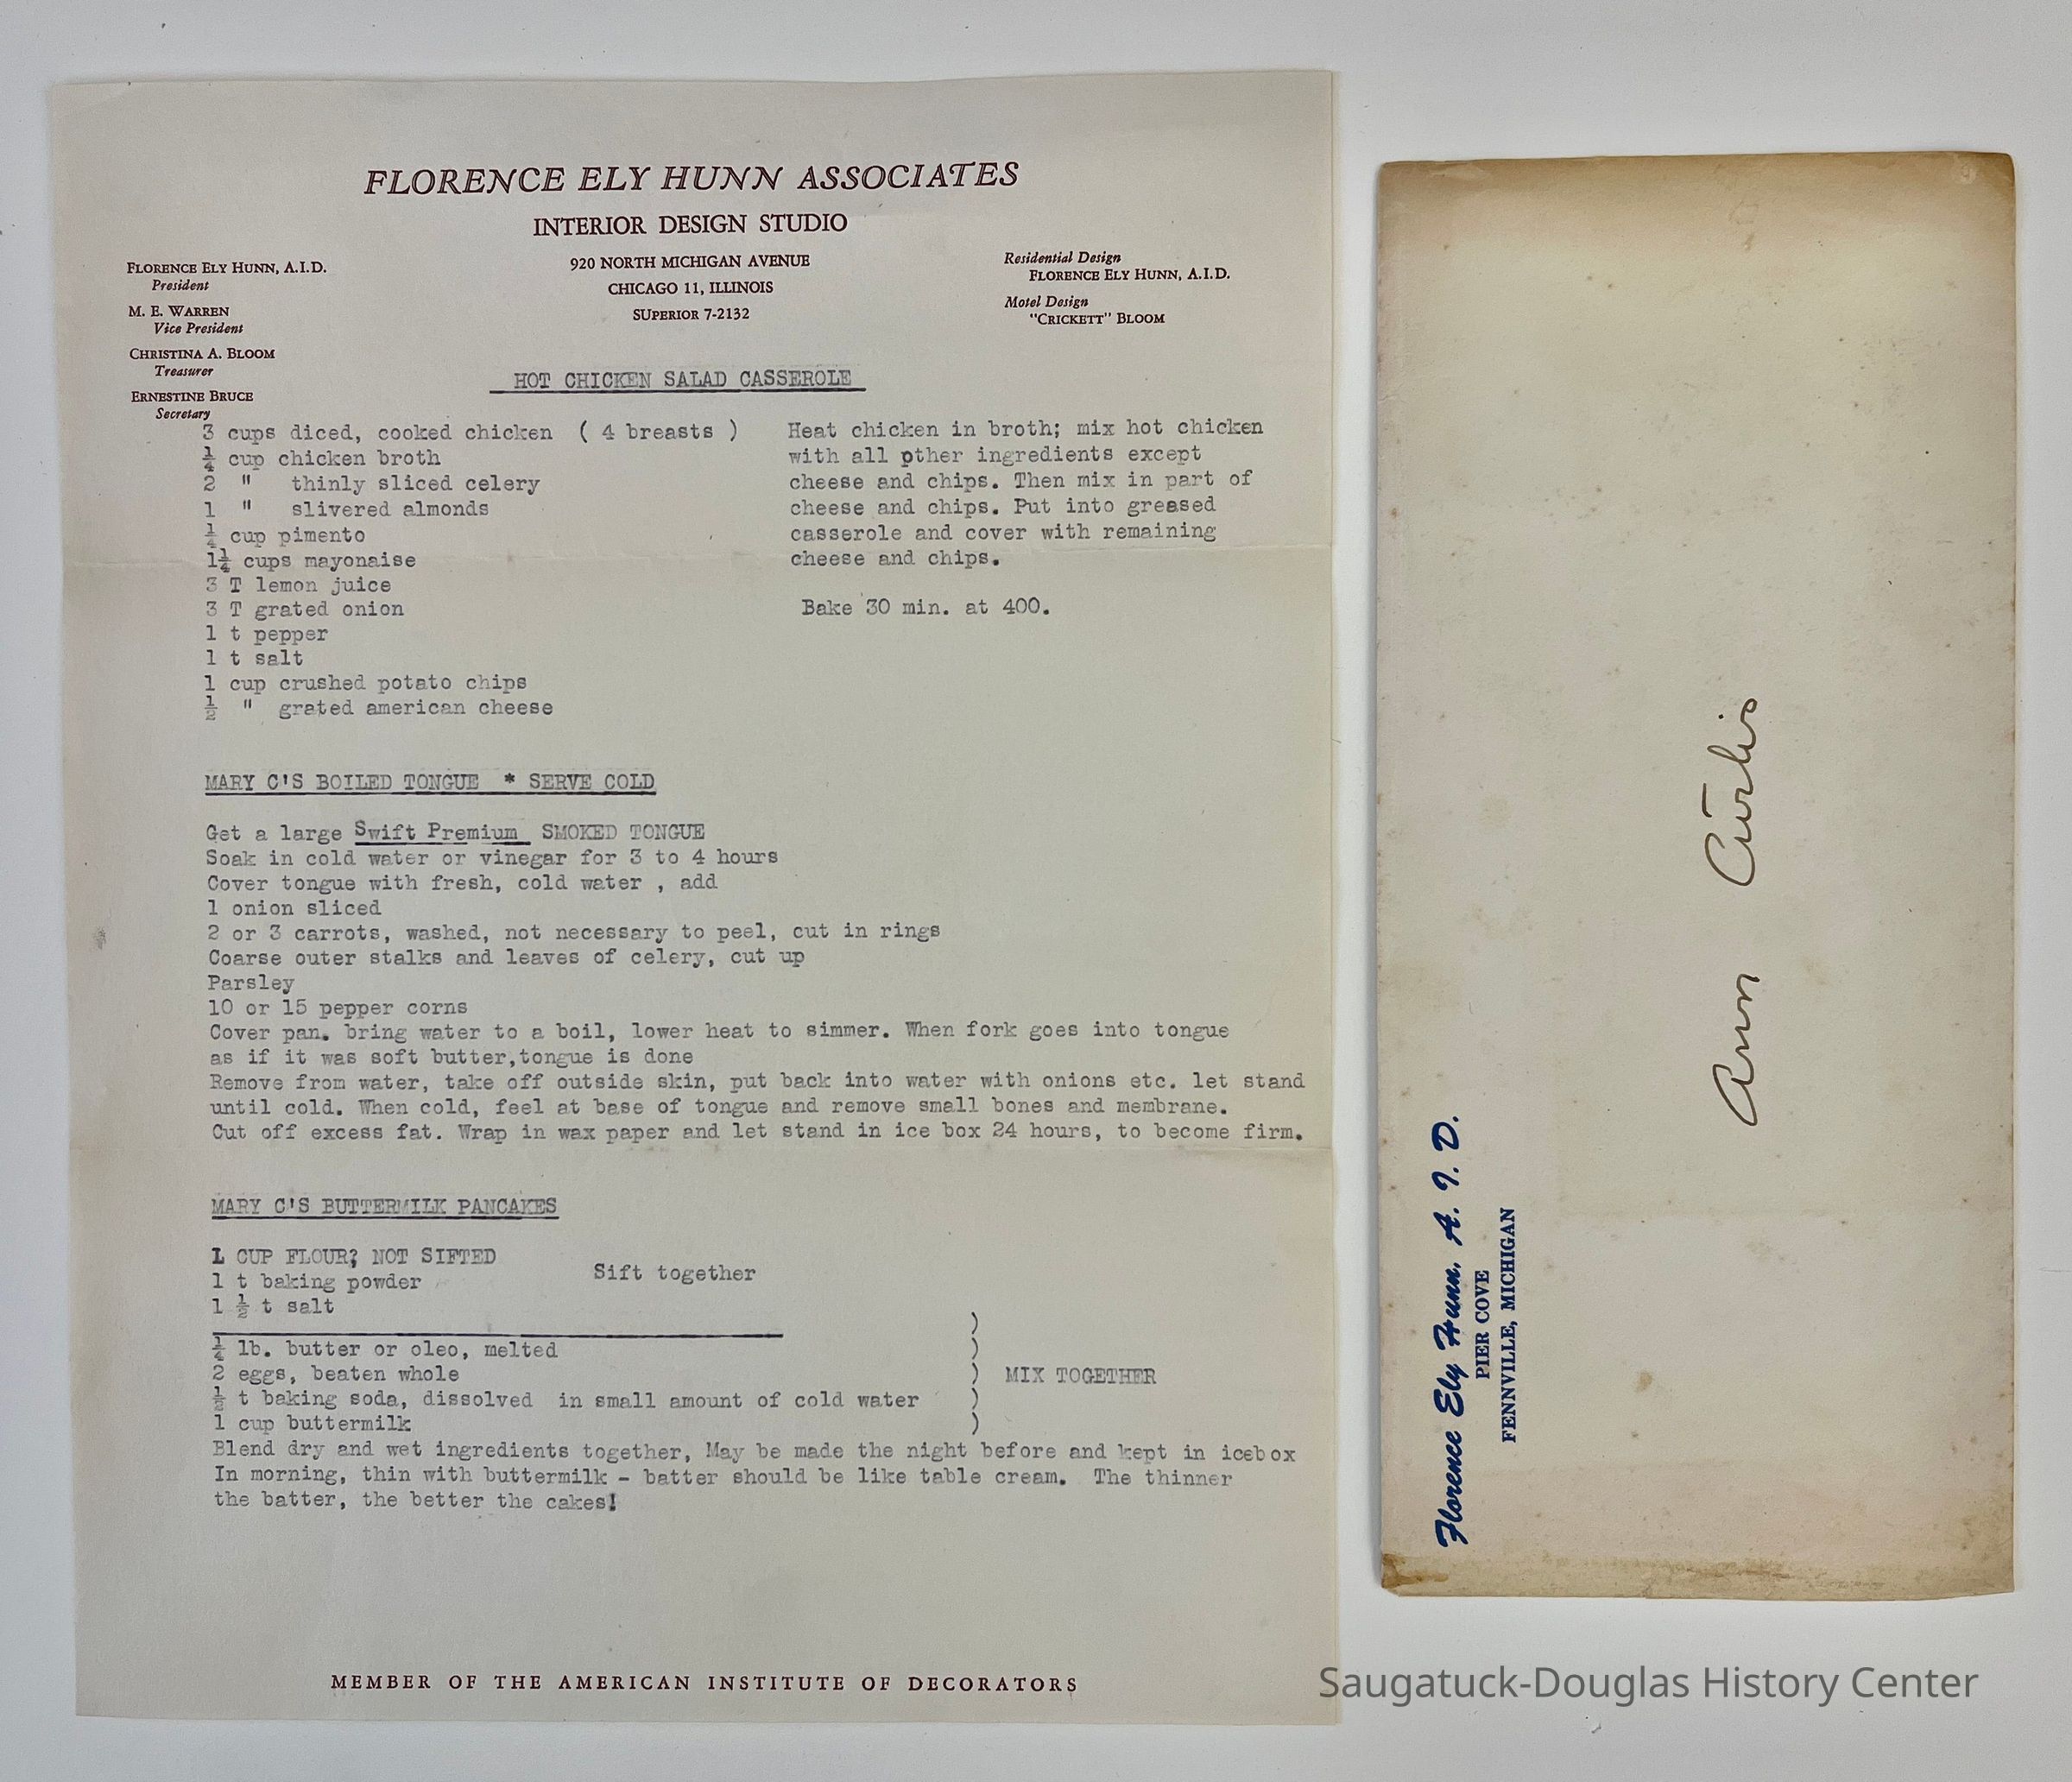 FLORENCE ELY HUNN ASSOCIATES
INTERIOR DESIGN STUDIO
920 NORTH MICHIGAN AVENUE
CHICAGO 11, ILLINOIS
SUPERIOR 7-2132
FLORENCE ELY HUNN, A.I.D.
President
M. E. WARREN
Vice President
CHRISTINA A. BLOOM
Treasurer
ERNESTINE BRUCE
Secretary
Residential Design
FLORENCE ELY HUNN, A.I.D.
Motel Design
"CRICKETT" BLOOM
HOT CHICKEN SALAD CASSEROLE
3 cups diced, cooked chicken ( 4 breasts )
¼ cup chicken broth
2 " thinly sliced celery
1 " slivered almonds
¼ cup pimento
1¼ cups mayonaise
3 T lemon juice
3 T grated onion
1 t pepper
1 t salt
1 cup crushed potato chips
½ " grated american cheese
Heat chicken in broth; mix hot chicken
with all pther ingredients except
cheese and chips. Then mix in part of
cheese and chips. Put into greased
casserole and cover with remaining
cheese and chips.
Bake 30 min. at 400.
MARY C'S BOILED TONGUE * SERVE COLD
Get a large Swift Premium SMOKED TONGUE
Soak in cold water or vinegar for 3 to 4 hours
Cover tongue with fresh, cold water , add
1 onion sliced
2 or 3 carrots, washed, not necessary to peel, cut in rings
Coarse outer stalks and leaves of celery, cut up
Parsley
10 or 15 pepper corns
Cover pan. bring water to a boil, lower heat to simmer. When fork goes into tongue
as if it was soft butter,tongue is done
Remove from water, take off outside skin, put back into water with onions etc. let stand
until cold. When cold, feel at base of tongue and remove small bones and membrane.
Cut off excess fat. Wrap in wax paper and let stand in ice box 24 hours, to become firm.
MARY C'S BUTTERMILK PANCAKES
1 CUP FLOUR; NOT SIFTED
1 t baking powder
1 ½ t salt
Sift together
¼ lb. butter or oleo, melted
2 eggs, beaten whole
½ t baking soda, dissolved in small amount of cold water
1 cup buttermilk
) ) ) ) )
MIX TOGETHER
Blend dry and wet ingredients together, May be made the night before and kept in icebox
In morning, thin with buttermilk - batter should be like table cream. The thinner
the batter, the better the cakes!
MEMBER OF THE AMERICAN INSTITUTE OF DECORATORS
Florence Ely Hunn, A. I. D.
PIER COVE
FENNVILLE, MICHIGAN
Ann Curtis
Saugatuck-Douglas History Center